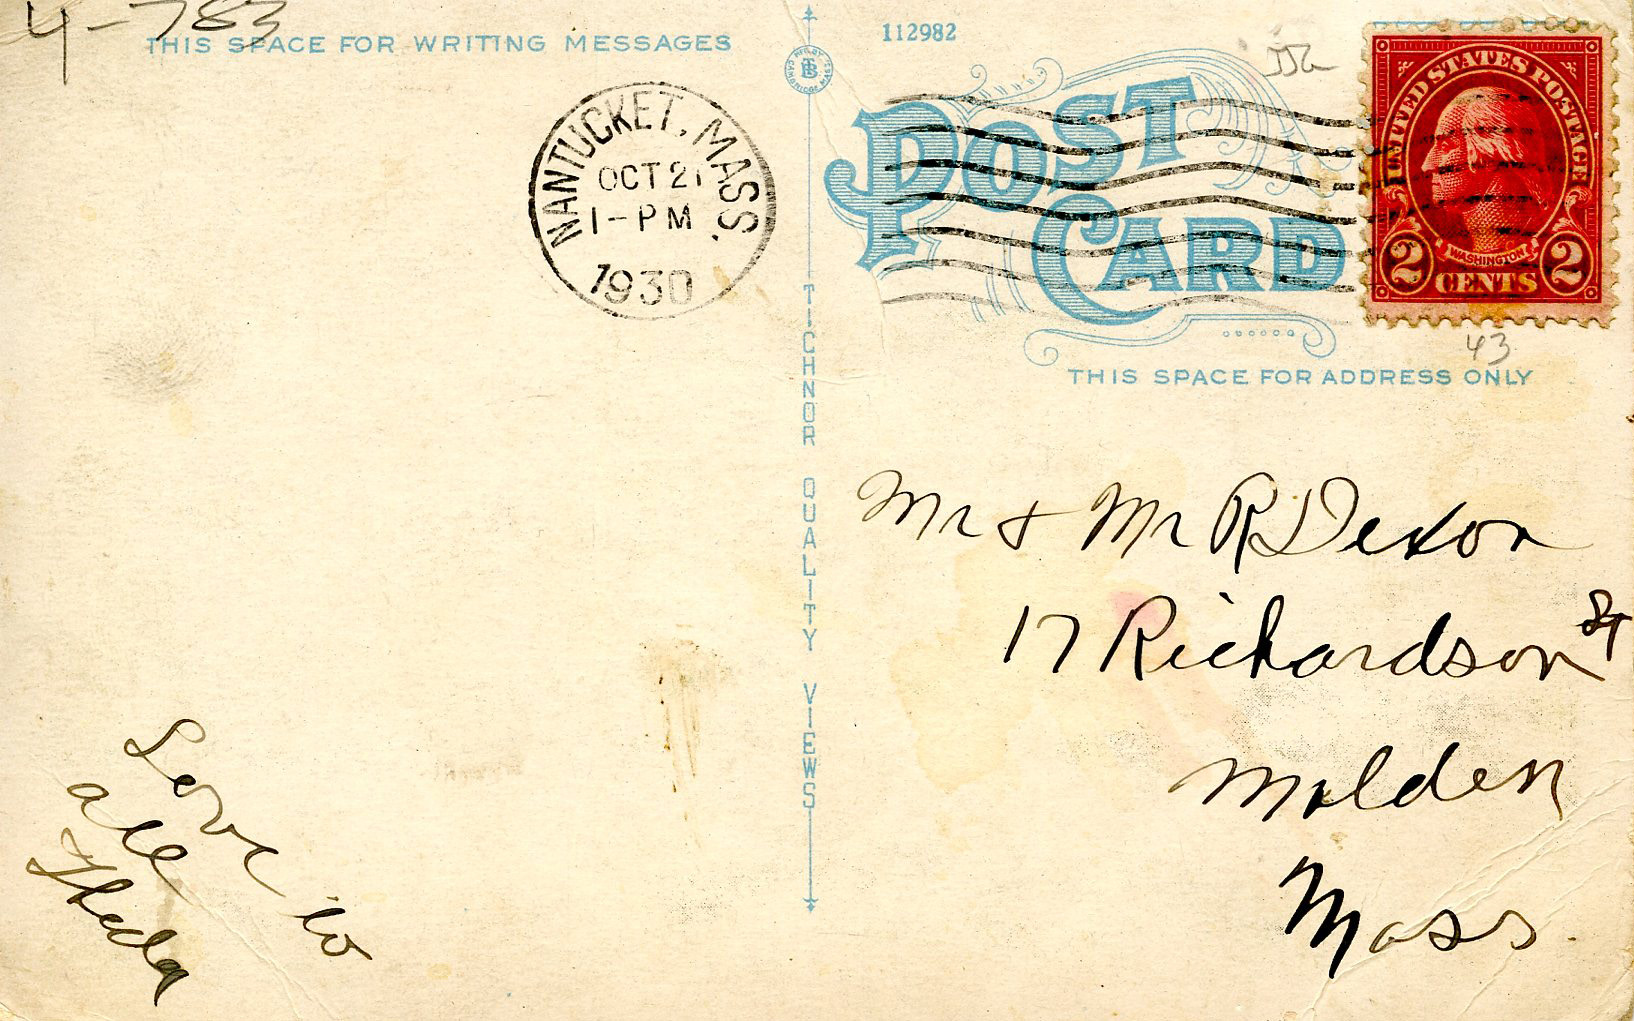 4-783
THIS SPACE FOR WRITING MESSAGES
112982
NANTUCKET, MASS.
OCT 21
1-PM
1930
POST
CARD
UNITED STATES POSTAGE
WASHINGTON
2 CENTS 2
43
THIS SPACE FOR ADDRESS ONLY
TICHNOR QUALITY VIEWS
Mr & Mr R Dexon
17 Richardson St
Malden
Mass.
Love to
all
Theda